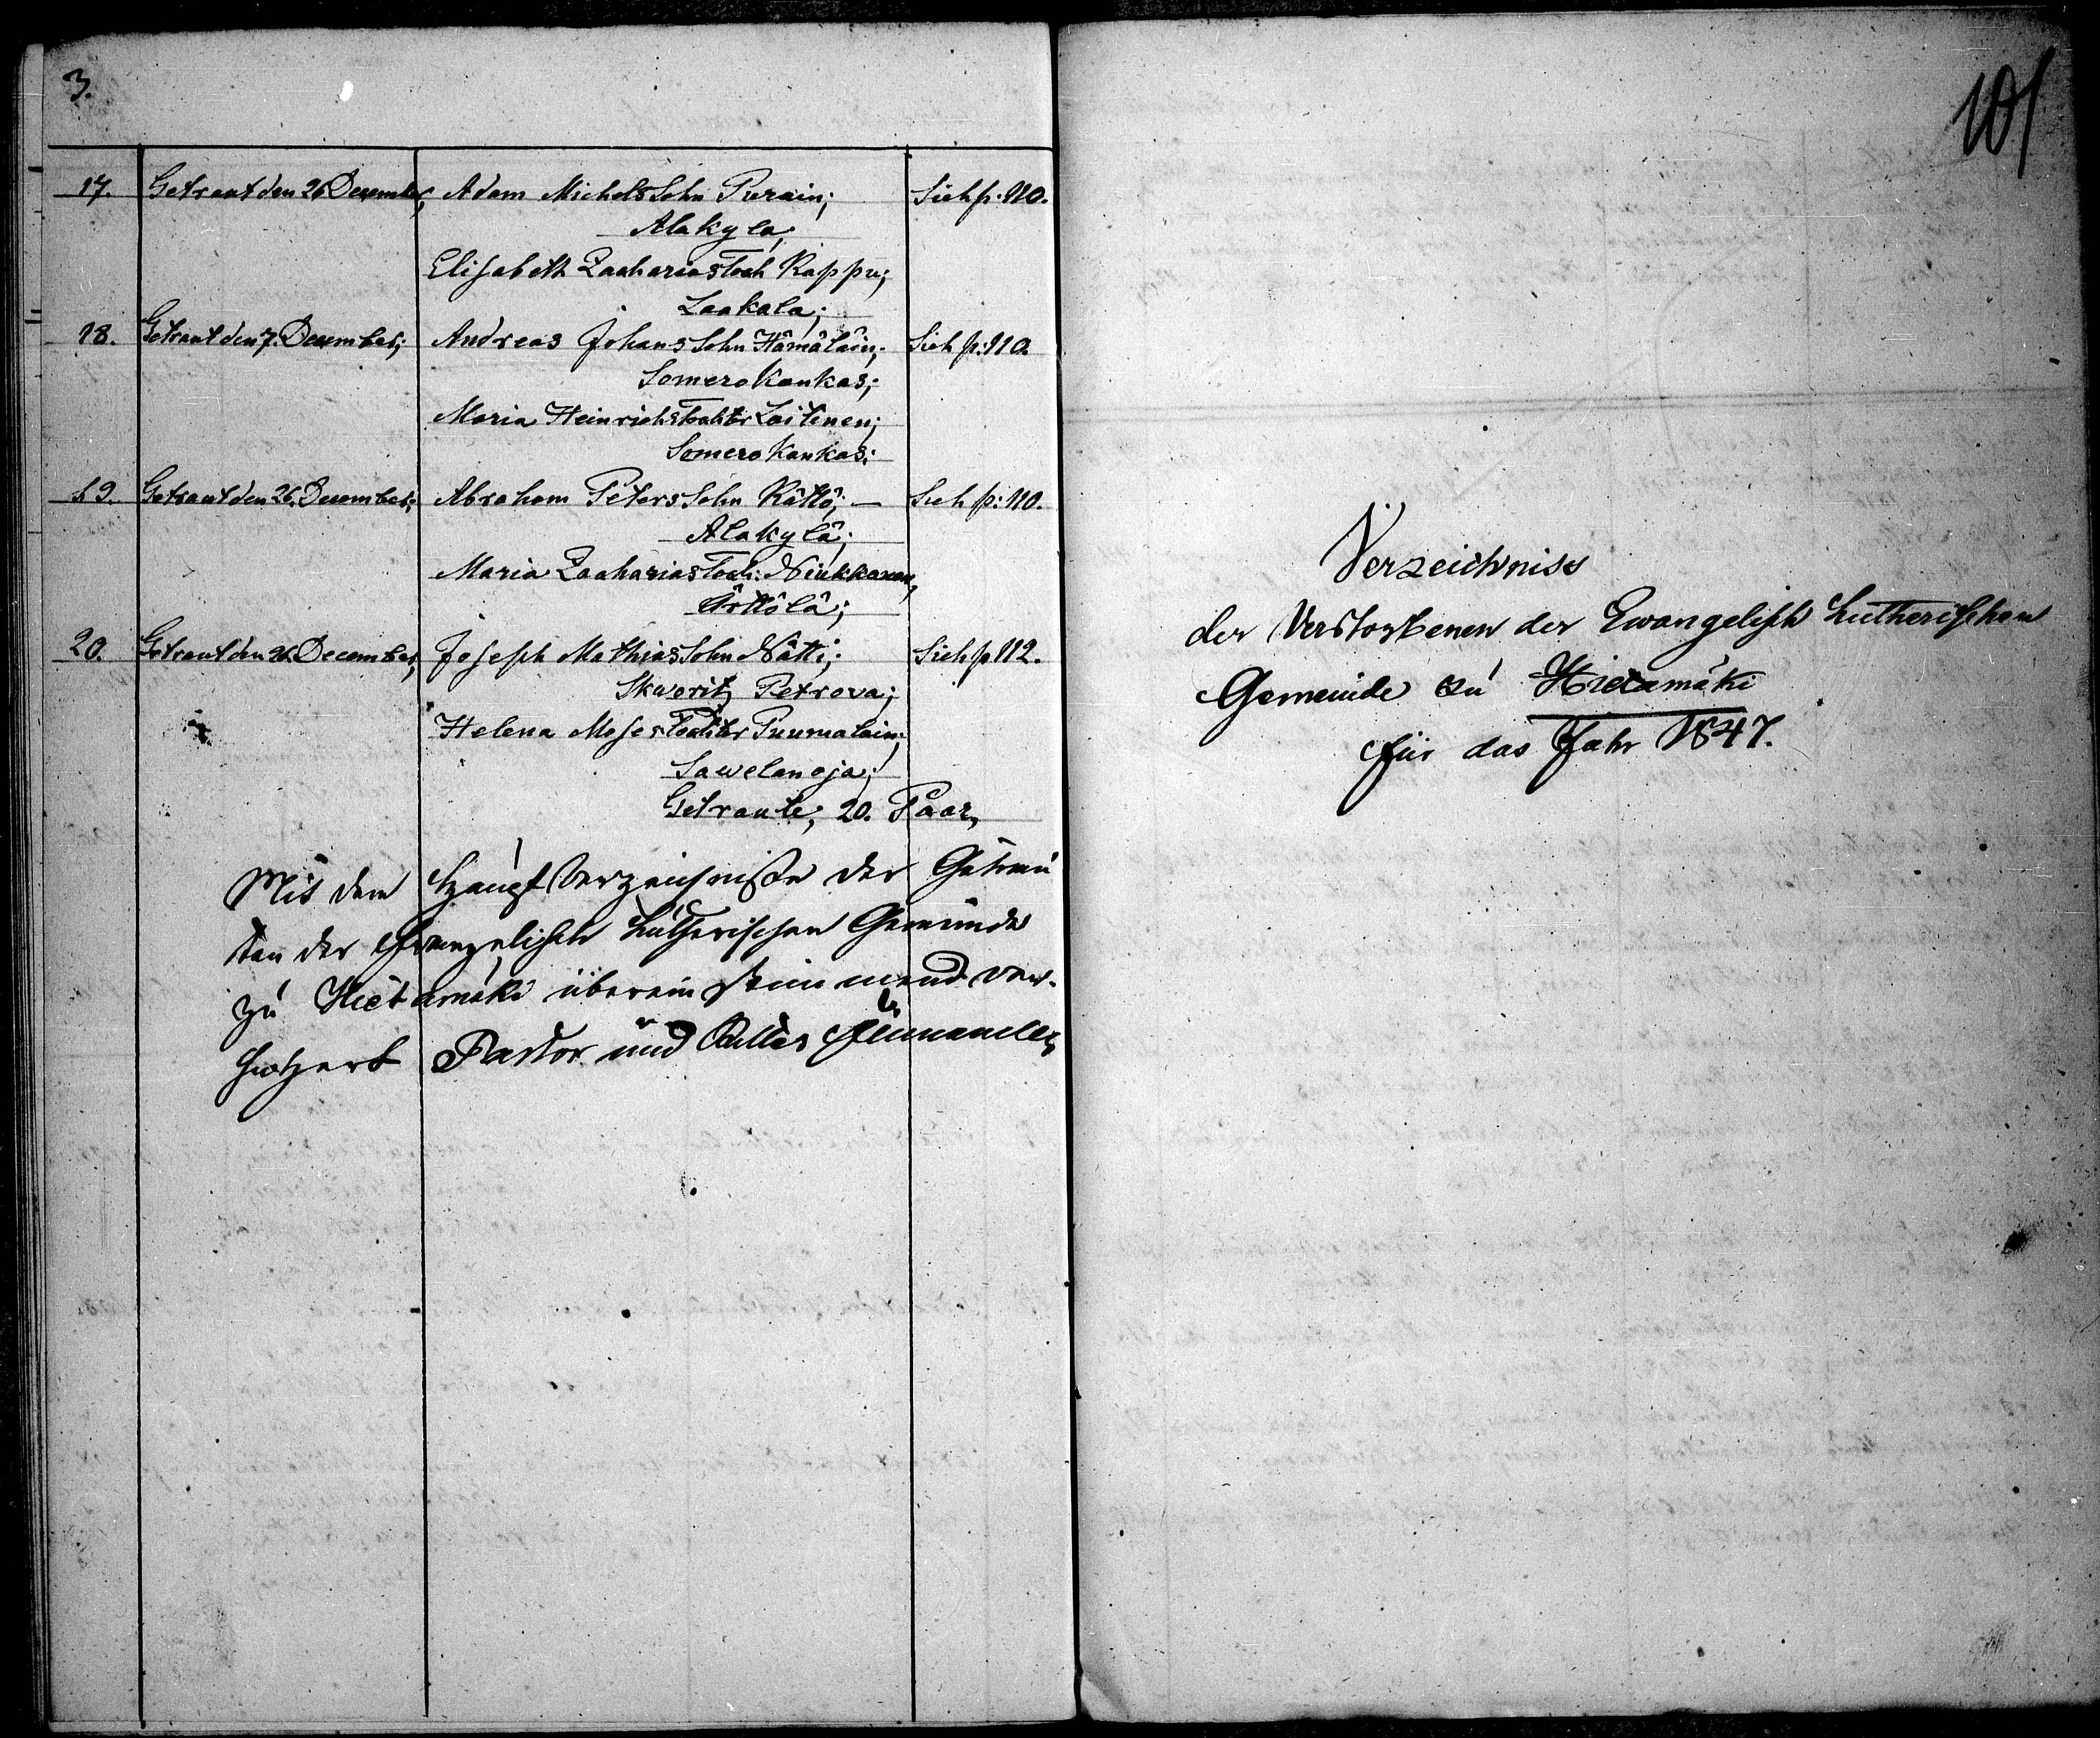 3.
17. Getraut den 26 December; Adam Michels Sohn Purain; Sieh p. 110.
Alakyla;
Elisabeth Zacharias Toch Kappu;
Laakala;
18. Getraut den 7. December; Andreas Johans Sohn Hämäläin; Sieh p: 110.
Somerokankas;
Maria Heinrichs Tochter Loitinen;
Somerokankas;
19. Getraut den 26. December; Abraham Peters Sohn Rättö; — Sieh p: 110.
Alakylä;
Maria Zacharias Toch: Ninkkanen,
Örttölä;
20. Getraut den 26. December, Joseph Mathias Sohn Nätti; Sieh p 112.
Skworitz Petrova;
Helena Moses Tochter Puumalain;
Sawelanoja;
Getraute; 20. Paar,
Mit dem Haupt Verzeichnisse der Getrau
ten der Evangelisch Lutherischen Gemeinde
zu Hietamäki übereinstimmend ver-
Pastor und Ritter
101
Verzeichniss
der Verstorbenen der Ewangelisch Lutherischen
Gemeinde zu Hietamäki
für das Jahr 1847.